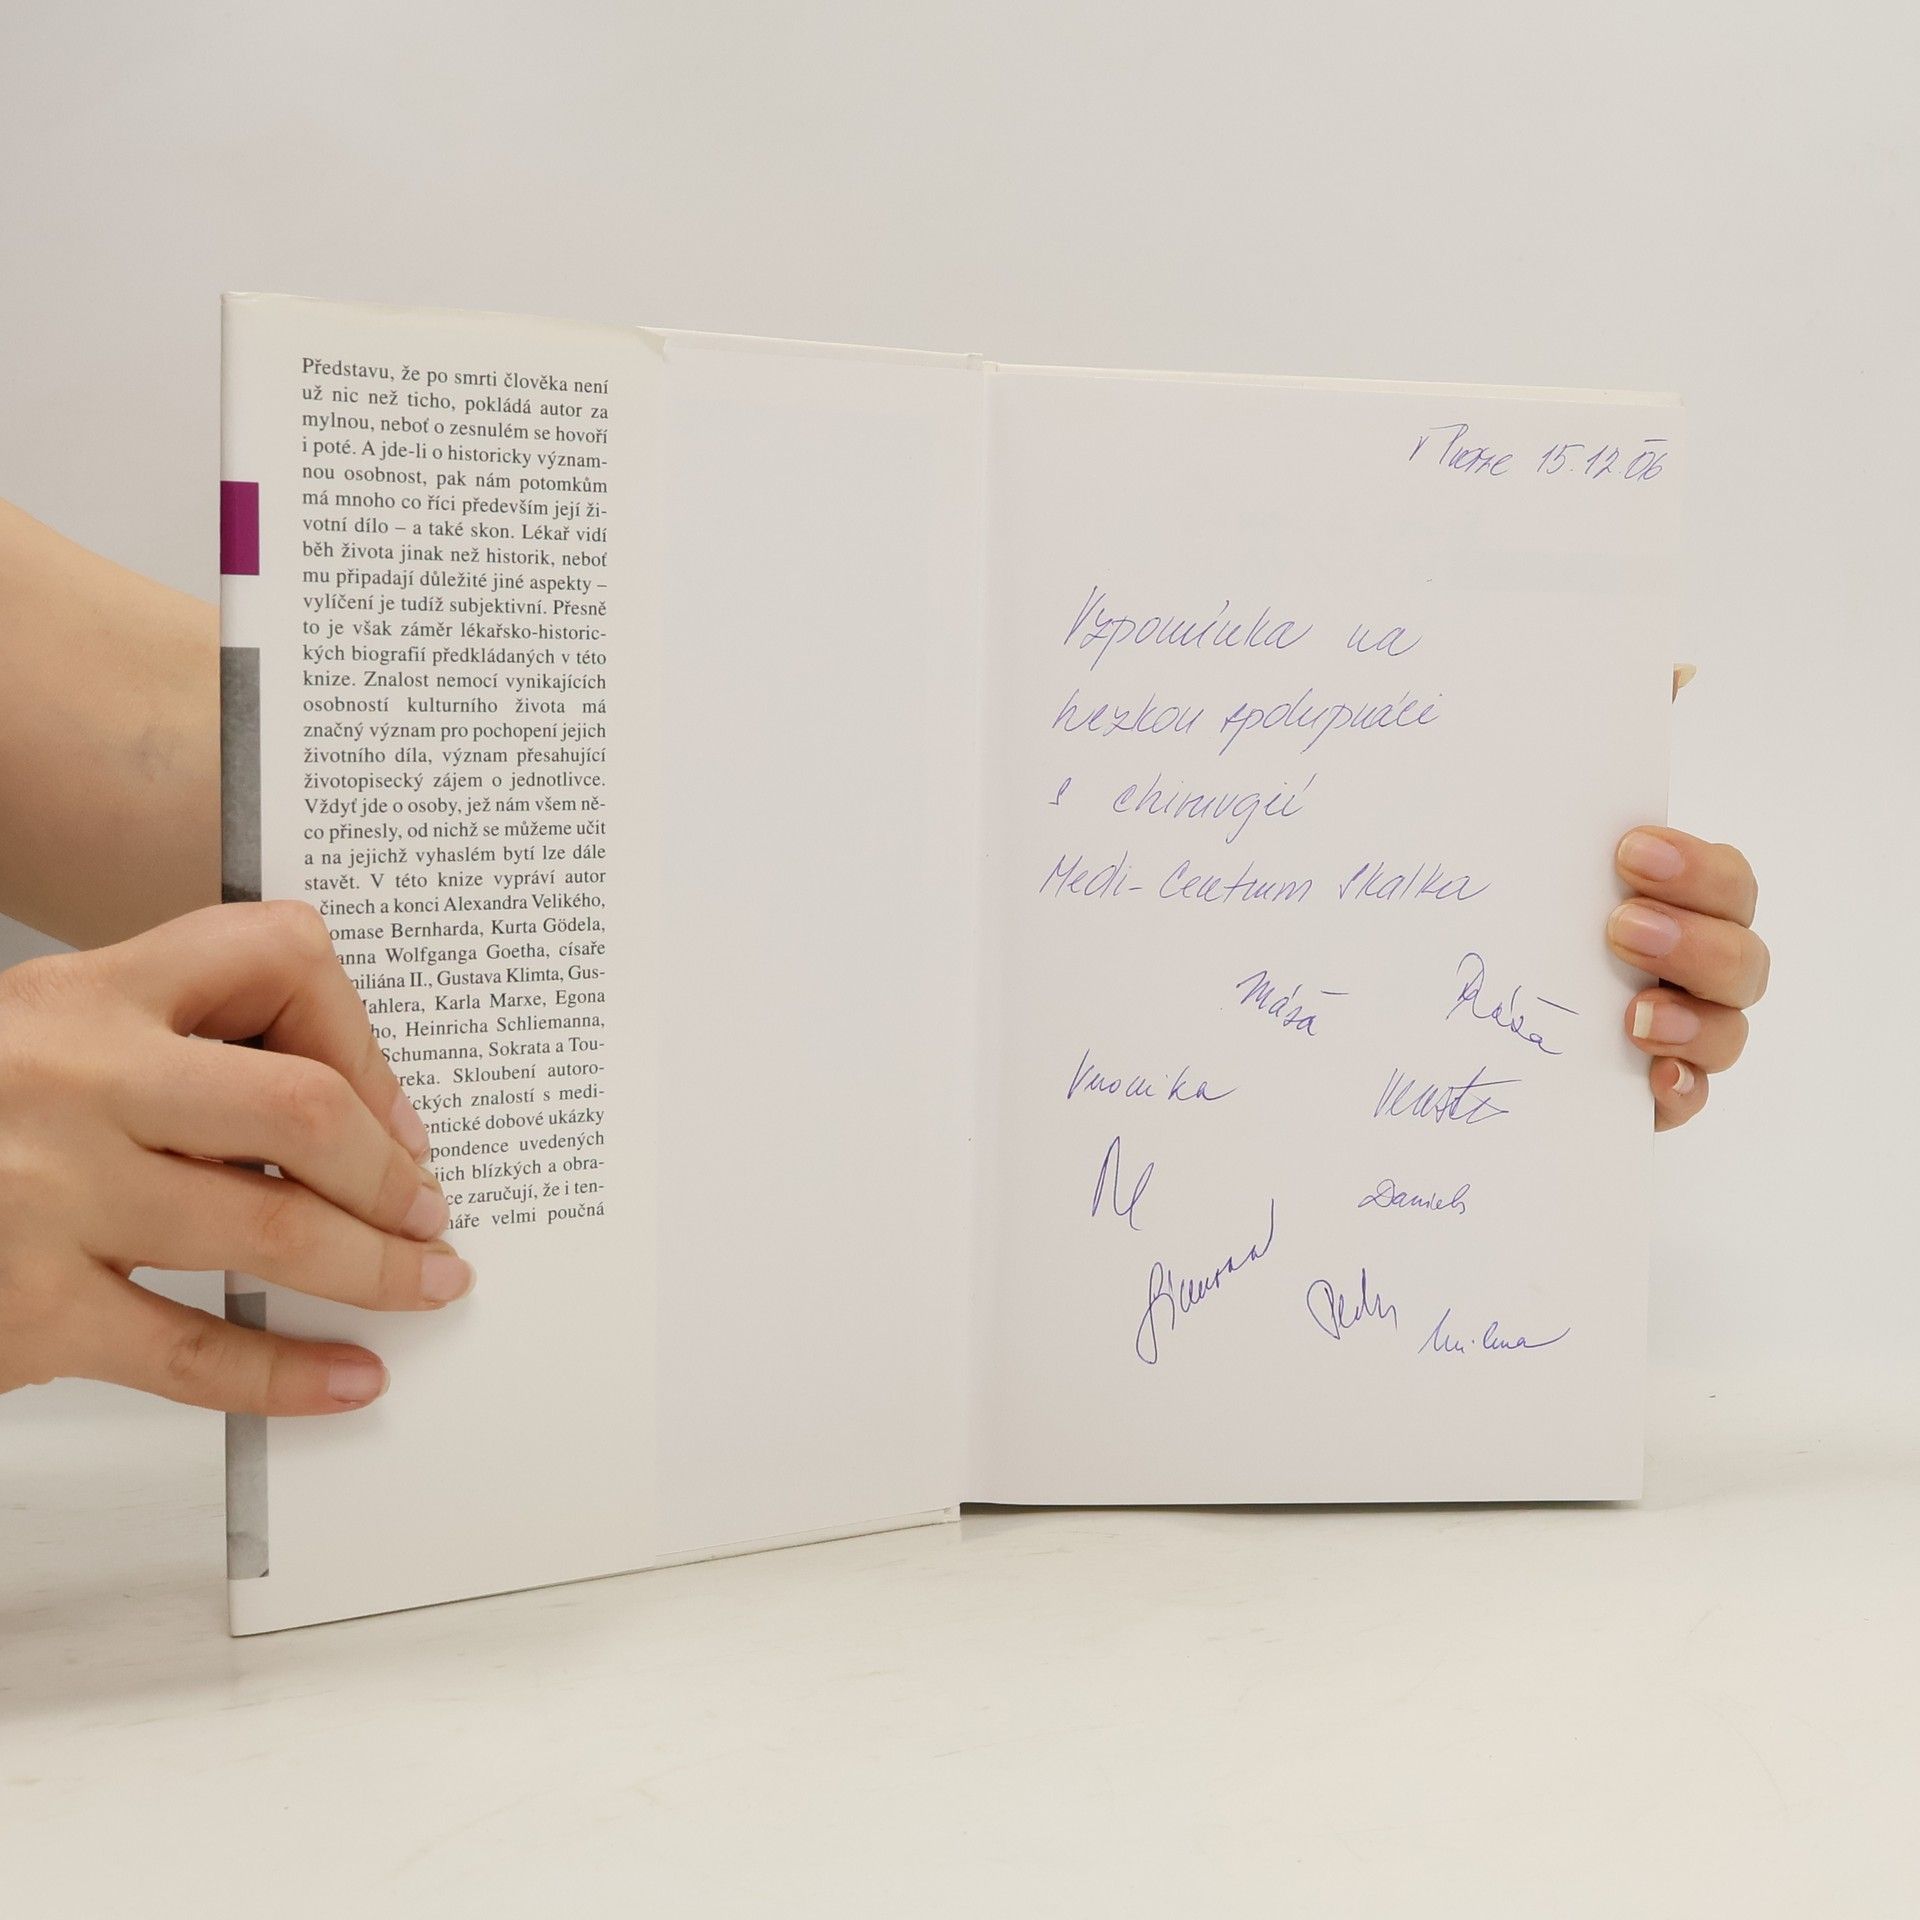 Představu, že po smrti člověka není
už nic než ticho, pokládá autor za
mylnou, neboť o zesnulém se hovoří
i poté. A jde-li o historicky význam-
nou osobnost, pak nám potomkům
má mnoho co říci především její ži-
votní dílo – a také skon. Lékař vidí
běh života jinak než historik, neboť
mu připadají důležité jiné aspekty –
vylíčení je tudíž subjektivní. Přesně
to je však záměr lékařsko-historic-
kých biografií předkládaných v této
knize. Znalost nemocí vynikajících
osobností kulturního života má
značný význam pro pochopení jejich
životního díla, význam přesahující
životopisecký zájem o jednotlivce.
Vždyť jde o osoby, jež nám všem ně-
co přinesly, od nichž se můžeme učit
a na jejichž vyhaslém bytí lze dále
stavět. V této knize vypráví autor
činech a konci Alexandra Velikého,
omase Bernharda, Kurta Gödela,
anna Wolfganga Goetha, císaře
miliána II., Gustava Klimta, Gus-
Mahlera, Karla Marxe, Egona
ho, Heinricha Schliemanna,
Schumanna, Sokrata a Tou-
reka. Skloubení autoro-
ických znalostí s medi-
entické dobové ukázky
pondence uvedených
jich blízkých a obra-
ce zaručují, že i ten-
náře velmi poučná
v Praze 15.12.06
Vzpomínka na
hezkou spolupráci
s chirurgií
Medi-Centrum Skalka
Máša
Veronika
Daniela
Milena